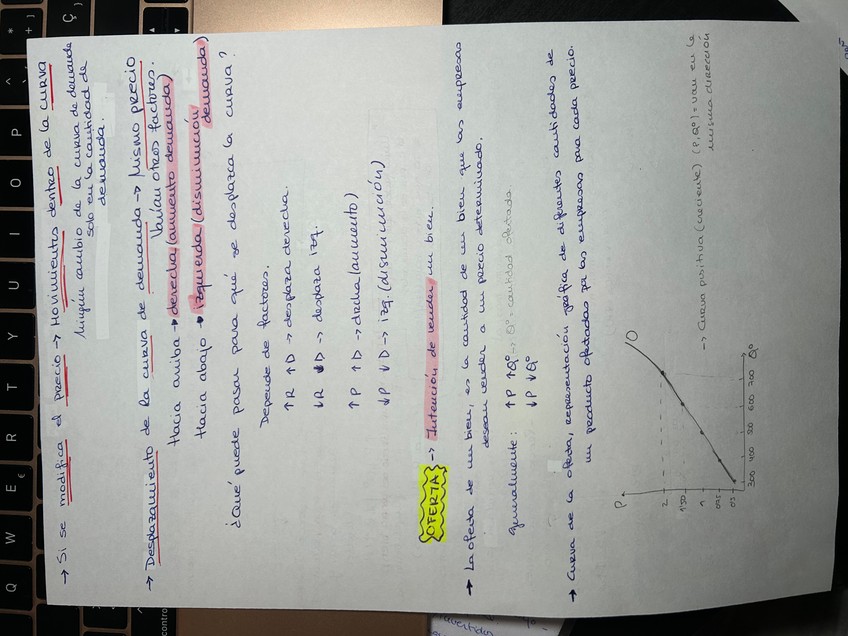 → Si se modifica el precio → Movimientos dentro de la curva
Ningún cambio de la curva de demanda
solo en la cantidad de
demanda.
→ Desplazamiento de la curva de demanda → Mismo precio
Varían otros factores.
Hacia arriba → derecha (aumento demanda)
Hacia abajo → izquierda (disminución
demanda)
¿Qué puede pasar para qué se desplazca la curva?
Depende de factores.
↑R ↑D → desplaza derecha.
↓R ↓D → desplaza izq.
↑P ↑D → drcha (aumento)
↓P ↓D → izq. (disminución)
OFERTA → Intención de vender un bien.
→ La oferta de un bien, es la cantidad de un bien que las empresas
desean vender a un precio determinado.
generalmente: ↑P ↑Qº → Qº = cantidad ofertada
↓P ↓Qº
→ Curva de la oferta, representación gráfica de diferentes cantidades de
un producto ofertadas por las empresas para cada precio.
P
O
2
1'50
1
0'5
300 400 600 700 Qº
→ Curva positiva (creciente) (P, Qº) = van en la
misma dirección
Q W E R T Y U I O P
€
control